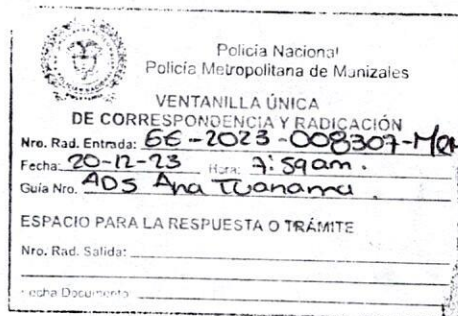 Policía Nacional
Policía Metropolitana de Manizales
VENTANILLA ÚNICA
DE CORRESPONDENCIA Y RADICACIÓN
Nro. Rad. Entrada: GE-2023-008307-
Fecha: 20-12-23 Hora: 7:59am.
Guía Nro. ADS Ana
ESPACIO PARA LA RESPUESTA O TRÁMITE
Nro. Rad. Salida:
Fecha Documento